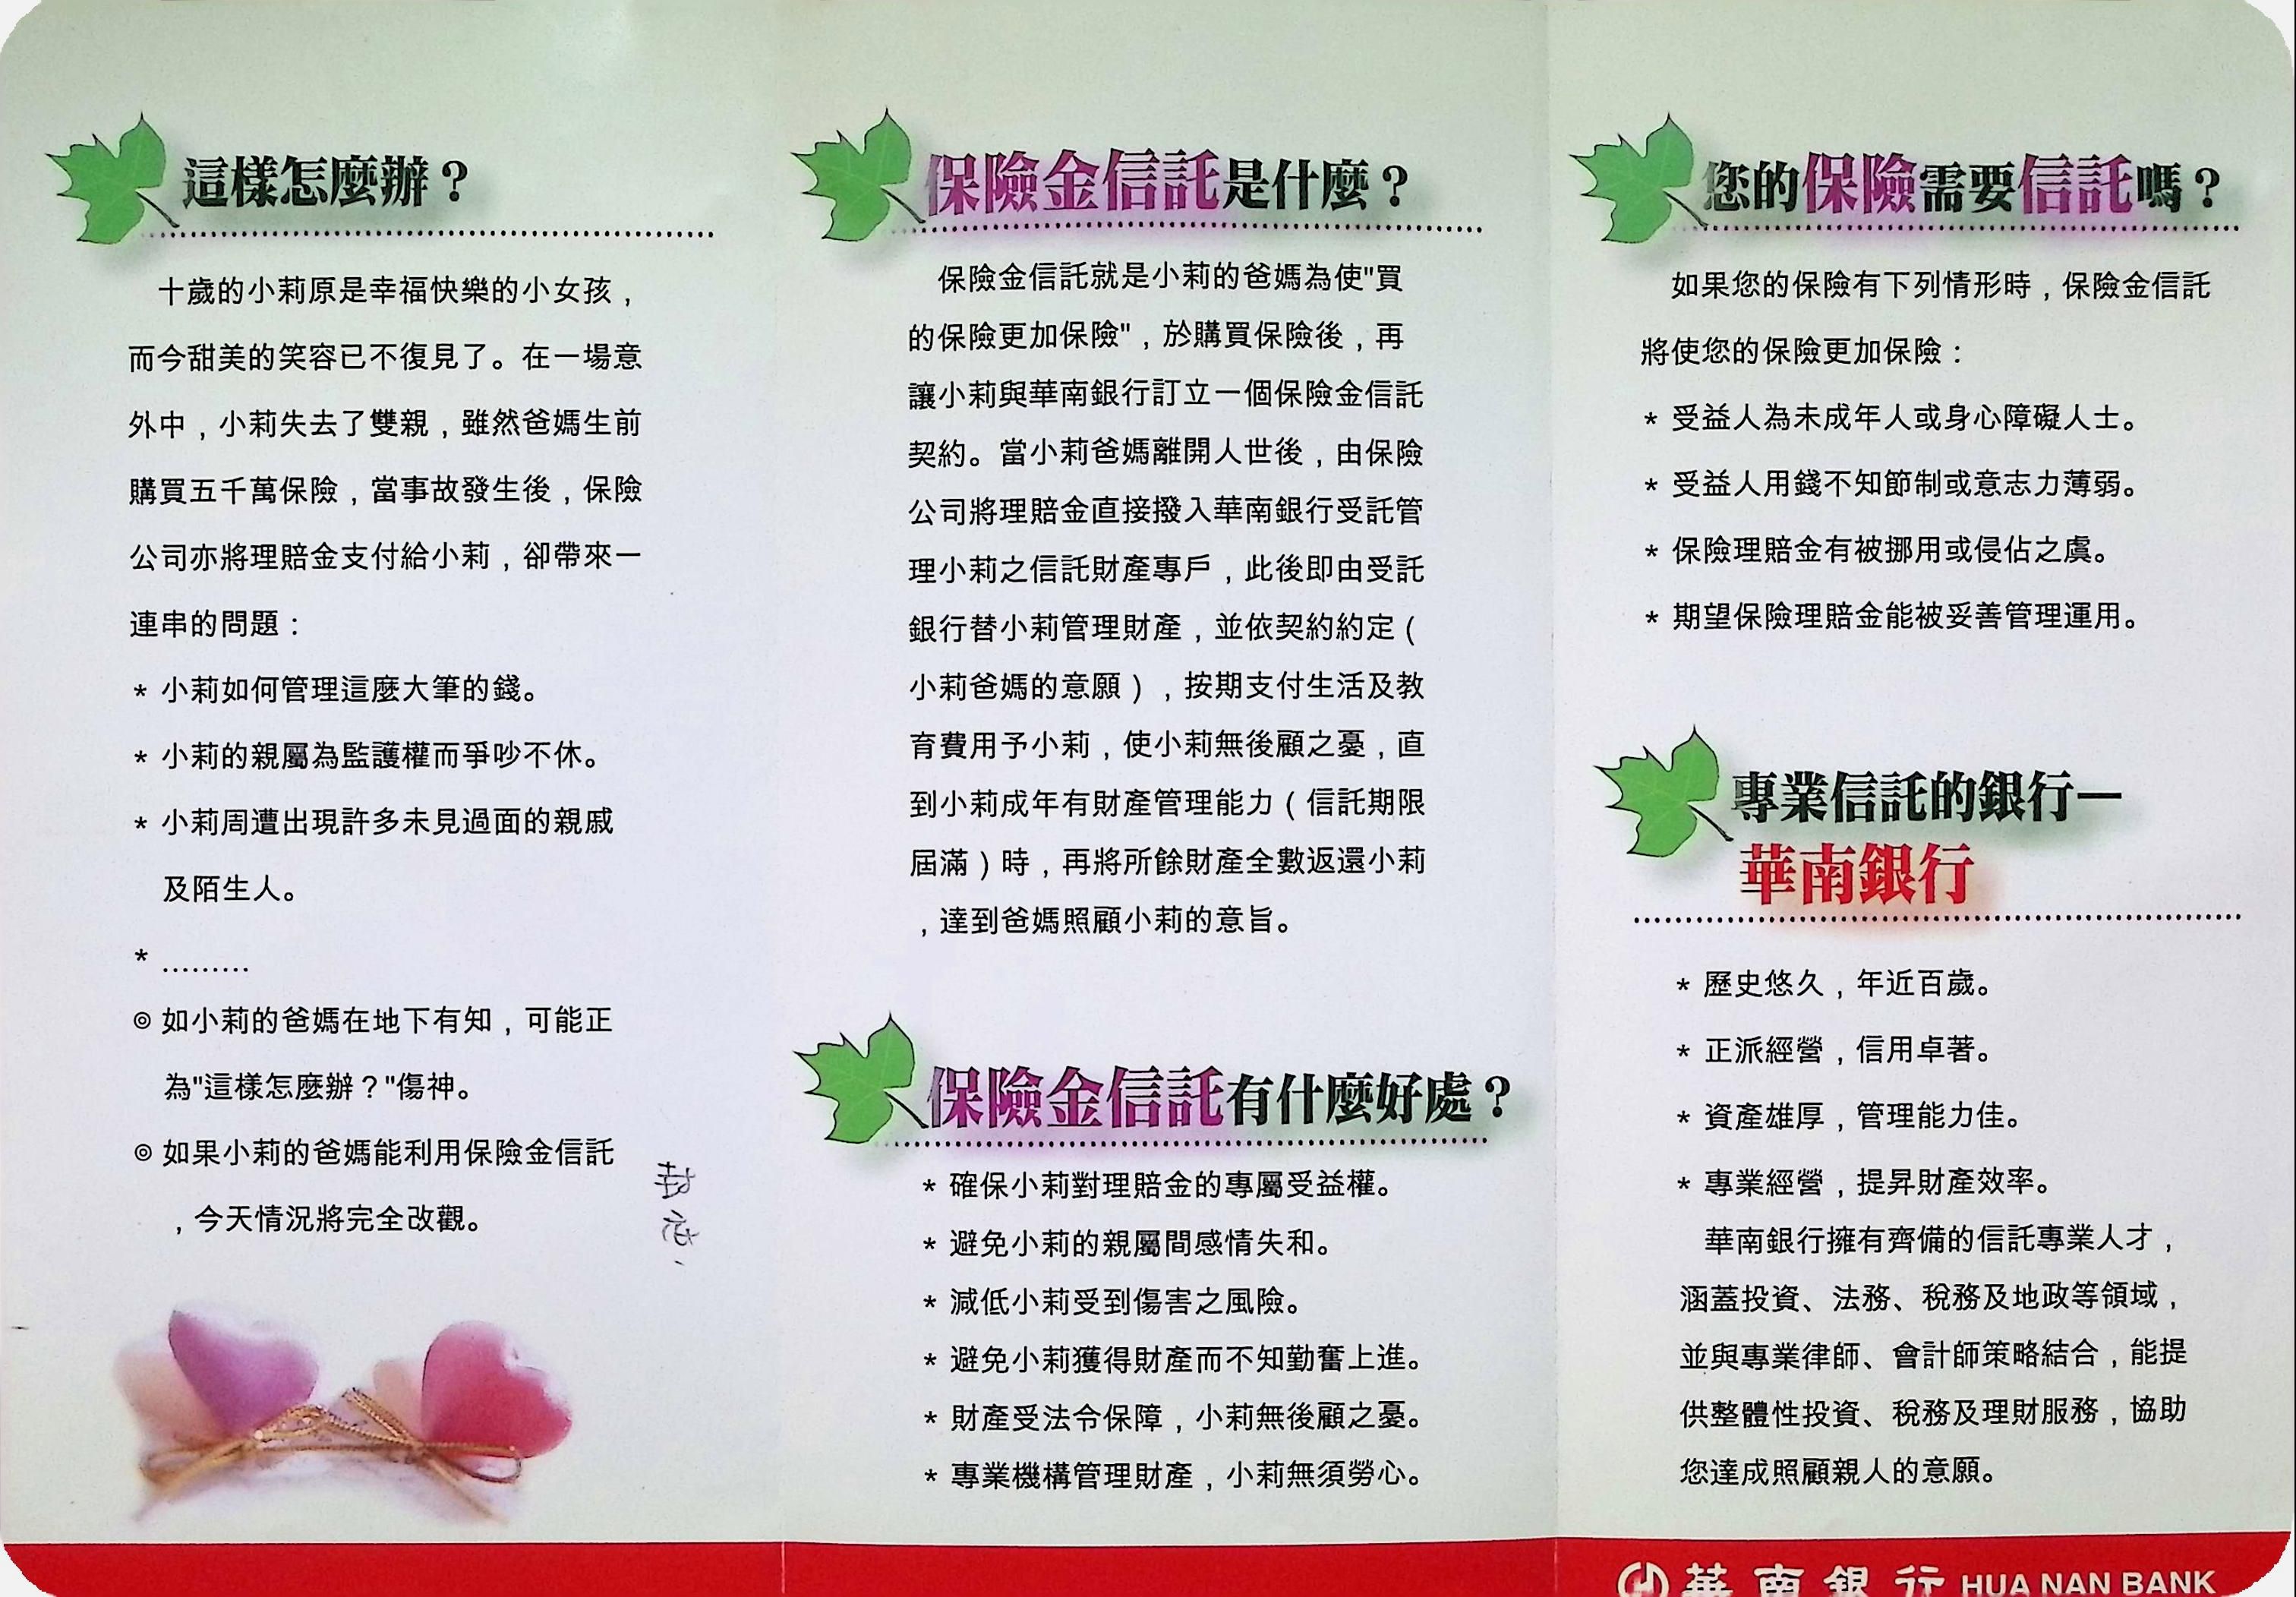 這樣怎麼辦？
十歲的小莉原是幸福快樂的小女孩，
而今甜美的笑容已不復見了。在一場意
外中，小莉失去了雙親，雖然爸媽生前
購買五千萬保險，當事故發生後，保險
公司亦將理賠金支付給小莉，卻帶來一
連串的問題：
* 小莉如何管理這麼大筆的錢。
* 小莉的親屬為監護權而爭吵不休。
* 小莉周遭出現許多未見過面的親戚
及陌生人。
* ………
◎ 如小莉的爸媽在地下有知，可能正
為"這樣怎麼辦？"傷神。
◎ 如果小莉的爸媽能利用保險金信託
，今天情況將完全改觀。
保險金信託是什麼？
保險金信託就是小莉的爸媽為使"買
的保險更加保險"，於購買保險後，再
讓小莉與華南銀行訂立一個保險金信託
契約。當小莉爸媽離開人世後，由保險
公司將理賠金直接撥入華南銀行受託管
理小莉之信託財產專戶，此後即由受託
銀行替小莉管理財產，並依契約約定（
小莉爸媽的意願），按期支付生活及教
育費用予小莉，使小莉無後顧之憂，直
到小莉成年有財產管理能力（信託期限
屆滿）時，再將所餘財產全數返還小莉
，達到爸媽照顧小莉的意旨。
保險金信託有什麼好處？
* 確保小莉對理賠金的專屬受益權。
* 避免小莉的親屬間感情失和。
* 減低小莉受到傷害之風險。
* 避免小莉獲得財產而不知勤奮上進。
* 財產受法令保障，小莉無後顧之憂。
* 專業機構管理財產，小莉無須勞心。
您的保險需要信託嗎？
如果您的保險有下列情形時，保險金信託
將使您的保險更加保險：
* 受益人為未成年人或身心障礙人士。
* 受益人用錢不知節制或意志力薄弱。
* 保險理賠金有被挪用或侵佔之虞。
* 期望保險理賠金能被妥善管理運用。
專業信託的銀行—
華南銀行
* 歷史悠久，年近百歲。
* 正派經營，信用卓著。
* 資產雄厚，管理能力佳。
* 專業經營，提昇財產效率。
華南銀行擁有齊備的信託專業人才，
涵蓋投資、法務、稅務及地政等領域，
並與專業律師、會計師策略結合，能提
供整體性投資、稅務及理財服務，協助
您達成照顧親人的意願。
華南銀行 HUA NAN BANK